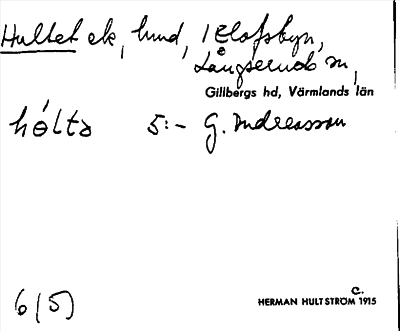 Hultet ek, hund, i Elofsbyn,
Långserud sn,
Gillbergs hd, Värmlands län
hə́ltə 5:- G. Andreasson
6 (5)
c.
HERMAN HULTSTRÖM 1915